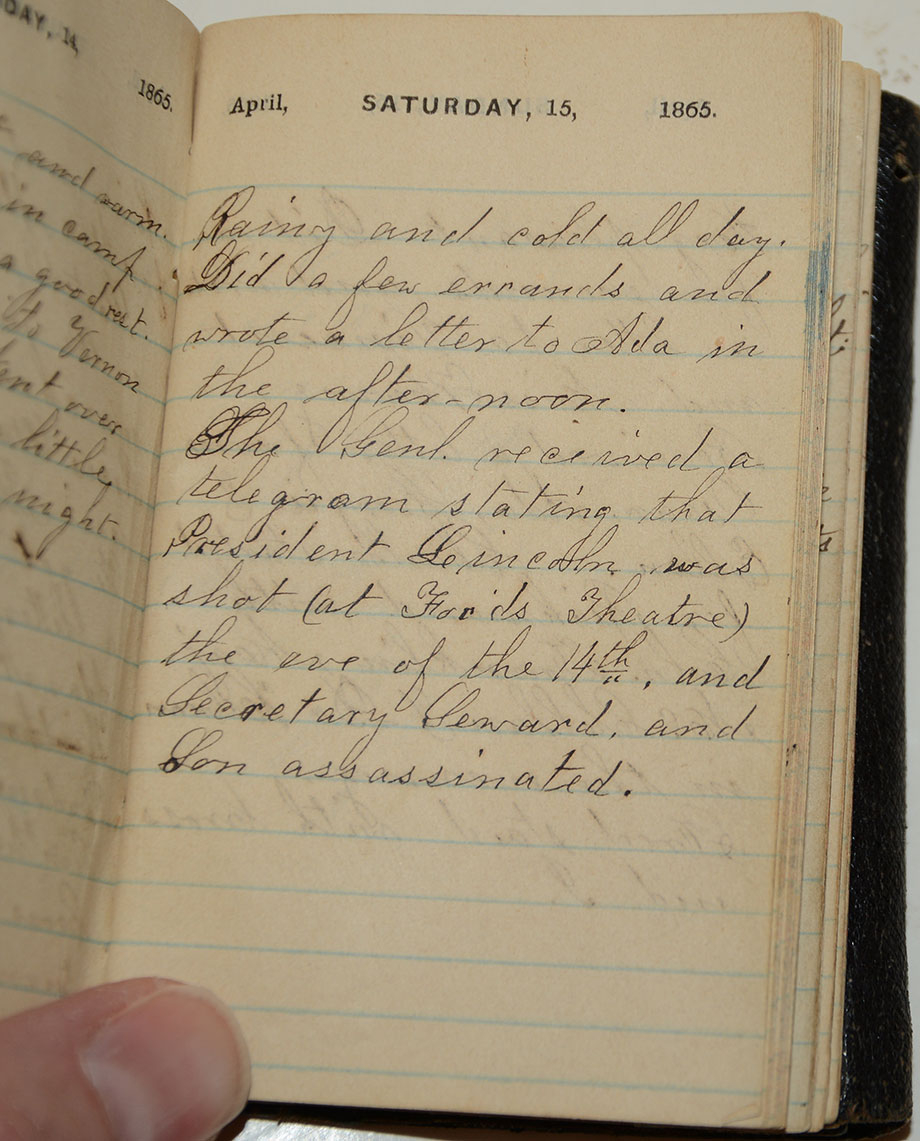 DAY, 14,
1865.
and warm.
in camp
a good rest.
to Vernon
ent over
little
night.
April, SATURDAY, 15, 1865.
Rainy and cold all day.
Did a few errands and
wrote a letter to Ada in
the after-noon.
The Genl. received a
telegram stating that
President Lincoln was
shot (at Ford's Theatre)
the eve of the 14th, and
Secretary Seward, and
Son assassinated.